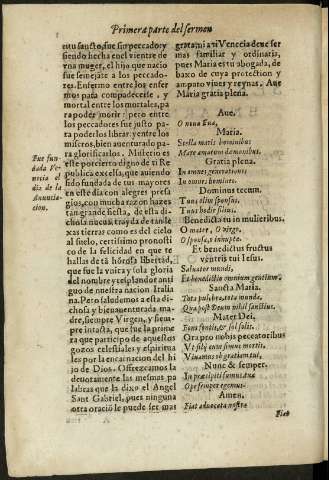 Primera parte del sermon
ritu sancto, fue sin peccado y
siendo hecha en el vientre de
vna muger, el hijo que nacio
fue semejãte a los peccado-
res. Enfermo entre los enfer
mos para compadecerse, y
mortal entre los mortales, pa
ra poder morir: pero entre
los peccadores fue justo pa-
ra poderlos librar: y entre los
miseros, bien auenturado pa-
ra glorificarlos. Misterio es
este por cierto digno de ti Re
publica excelsa, que auiendo
sido fundada de tus mayores
en este dia con alegres presa
gios, con mucha razon hazes
tan grande fiesta, de esta di-
chosa nueua, trayda de tan le
xas tierras como es del cielo
al suelo, certissimo pronosti
co de la felicidad en que te
hallas de tã hõrosa libertad,
que fue la voz y sola gloria
del nombre y resplandor anti
guo de nuestra nacion Italia
na. Pero saludemos a esta di-
chosa y bienauenturada ma-
dre, siempre Virgen, y siem-
pre intacta, que fue la prime
ra que participo de aquestos
gozos celestiales y espiritua
les por la encarnacion del hi
jo de Dios. Offrezcamosla
deuotamente las mesmas pa
labras que la dixo el Angel
Sant Gabriel, pues ninguna
otra oraciõ le puede ser mas
Fue fun-
dada Ve
necia el
dia de la
Annuncia-
cion.
grata: ni a ti Venecia deue ser
mas familiar y ordinaria,
pues Maria es tu abogada, de
baxo de cuya protection y
amparo viues y reynas. Aue
Maria gratia plena.
Aue.
O noua Eua,
Maria.
Stella maris hominibus
Mare amarum dæmonibus.
Gratia plena.
In omnes generationes,
In omnes homines.
Dominus tecum.
Tuus olim sponsus,
Tuus hodie filius.
Benedicta tu in mulieribus.
O mater, O virgo,
O sponsa, o innupta.
Et benedictus fructus
ventris tui Iesus.
Saluator mundi,
Et benedictio omnium gentium.
Sancta Maria.
Tota pulchra, tota munda,
Qua post Deum nihil sanctius.
Mater Dei.
Fons fontis, & sol solis.
Ora pro nobis peccatoribus
Vt sibi cum simus mortis,
Viuamus ob gratiam tui,
Nunc & semper.
In præcipiti sumus
Ope semper egemus.
Amen.
Fiat aduocata nostra
Fiat